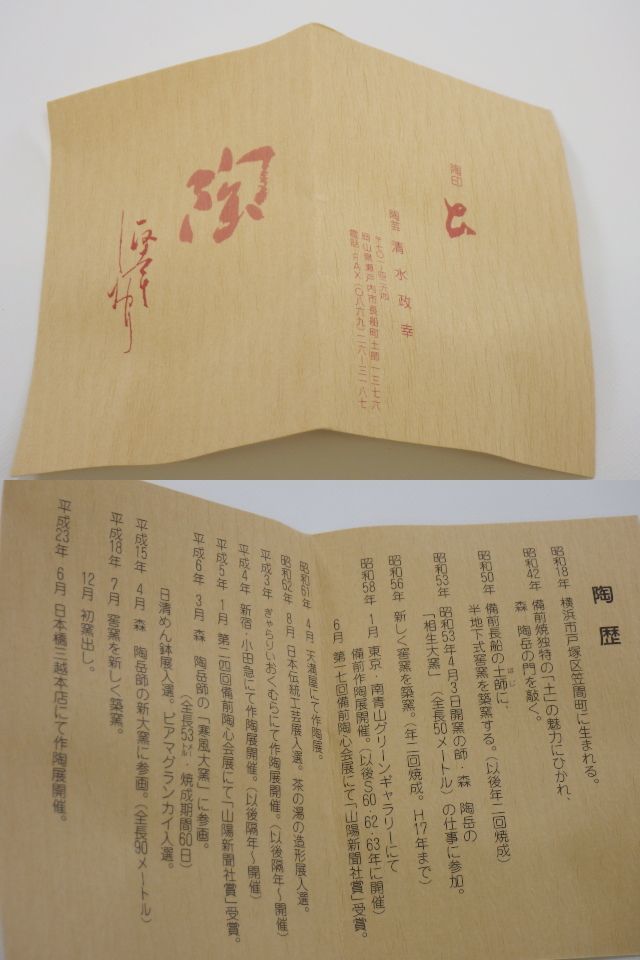 陶印
陶芸 清水政幸
岡山県瀬戸内市長船町土師一三七六
電話・FAX(〇八六九)二六-三一八七
陶
陶歴
昭和18年 横浜市戸塚区笠間町に生まれる。
昭和42年 備前焼独特の「土」の魅力にひかれ、
森 陶岳の門を敲く。
昭和50年 備前長船の土師に、
はじ
半地下式窖窯を築窯する。(以後年二回焼成)
昭和53年 昭和53年4月3日開窯の師・森 陶岳の
「相生大窯」(全長50メートル)の仕事に参加。
昭和56年 新しく窖窯を築窯。(年二回焼成。H17年まで)
昭和58年 1月 東京・南青山グリーンギャラリーにて
備前作陶展開催。(以後S60 62 63年に開催)
6月 第一七回備前陶心会展にて「山陽新聞社賞」受賞。
昭和61年 4月 天満屋にて作陶展。
昭和62年 8月 日本伝統工芸展入選。茶の湯の造形展入選。
平成3年 ぎゃらりいおくむらにて作陶展開催。(以後隔年~開催)
平成4年 新宿・小田急にて作陶展開催。(以後隔年~開催)
平成5年 1月 第二四回備前陶心会展にて「山陽新聞社賞」受賞。
平成6年 3月 森 陶岳師の「寒風大窯」に参画。
(全長53㍍・焼成期間60日)
日清めん鉢展入選。ビアマグランカイ入選。
平成15年 4月 森 陶岳師の新大窯に参画。(全長90メートル)
平成18年 7月 窖窯を新しく築窯。
12月 初窯出し。
平成23年 6月 日本橋三越本店にて作陶展開催。